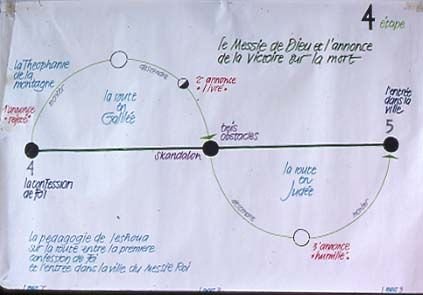 4 étape
le Messie de Dieu et l'annonce
de la victoire sur la mort
la Théophanie
de la
montagne
monter
descendre
1° annonce
"rejeté"
2° annonce
"livré"
la route
en
Galilée
l'entrée
dans la
ville
5
trois
obstacles
skandalon
4
la confession
de foi
la route
en
Judée
descendre
monter
3° annonce
"humilié"
la pédagogie de Ieshoua
sur la route entre la première
confession de foi
et l'entrée dans la ville du Messie Roi